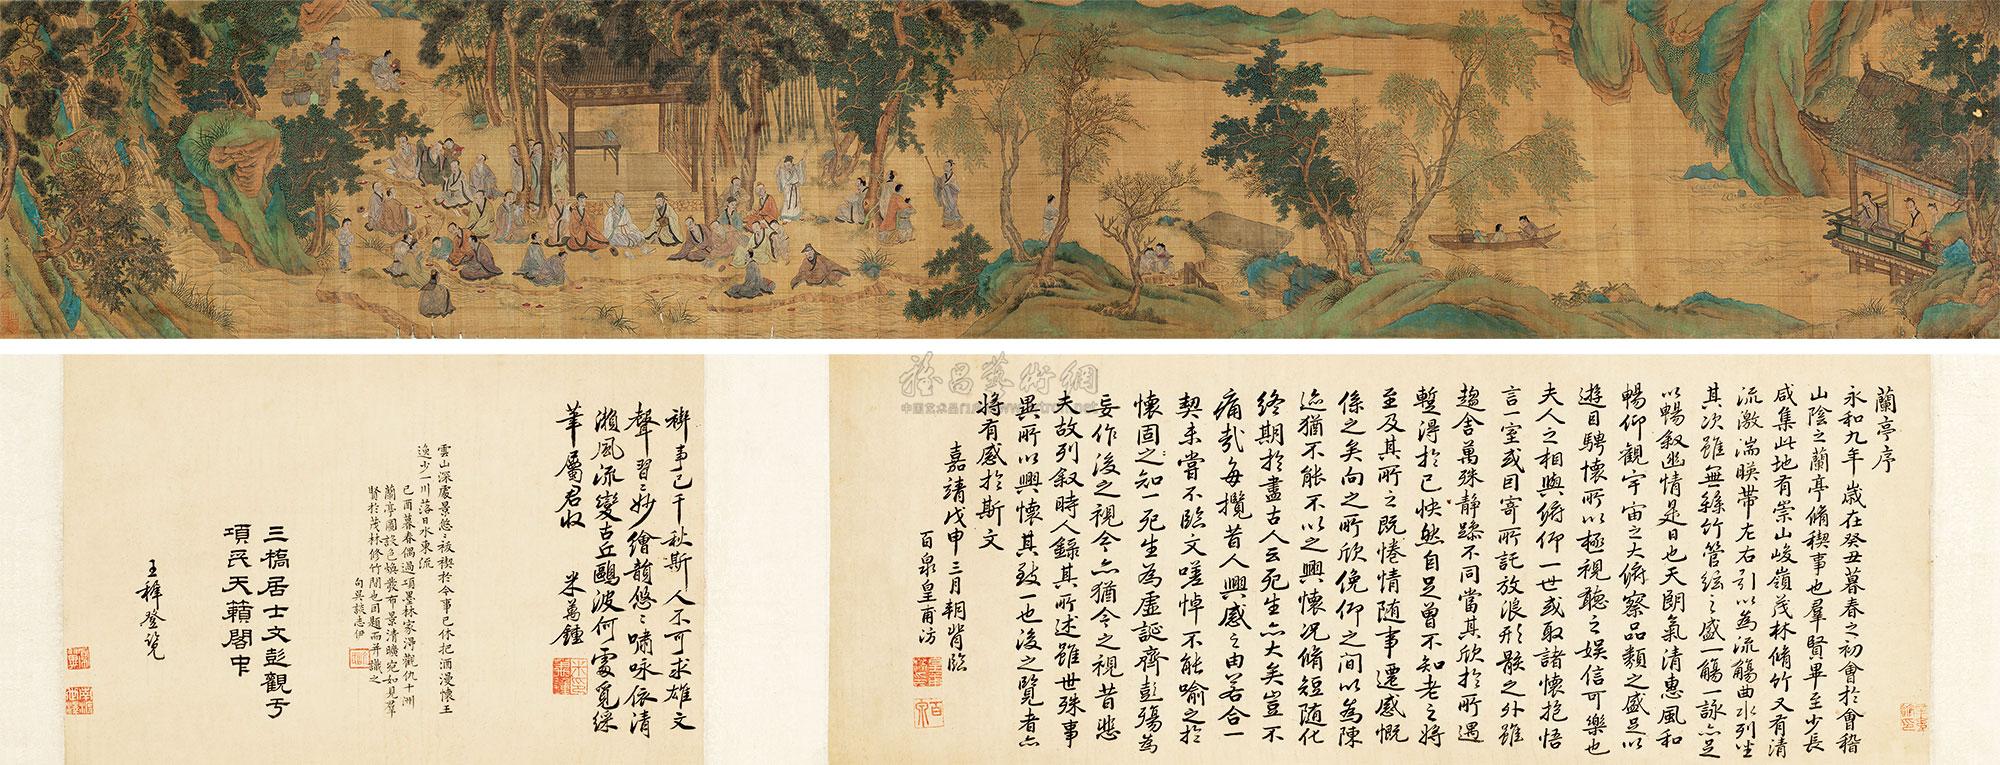 蘭亭序
永和九年歲在癸丑暮春之初會於會稽
山陰之蘭亭脩稧事也羣賢畢至少長
咸集此地有崇山峻嶺茂林脩竹又有清
流激湍暎帶左右引以為流觴曲水列坐
其次雖無絲竹管絃之盛一觴一詠亦足
以暢叙幽情是日也天朗氣清惠風和
暢仰觀宇宙之大俯察品類之盛足以
遊目騁懷所以極視聽之娛信可樂也
夫人之相與俯仰一世或取諸懷抱悟
言一室或因寄所託放浪形骸之外雖
趨舍萬殊靜躁不同當其欣於所遇
暫得於己快然自足曾不知老之將
至及其所之既惓情随事遷感慨
係之矣向之所欣俛仰之間以為陳
迹猶不能不以之興懷況脩短随化
終期於盡古人云死生亦大矣豈不
痛哉每攬昔人興感之由若合一
契未嘗不臨文嗟悼不能喻之於
懷固知一死生為虛誕齊彭殤為
妄作後之視今亦猶今之視昔悲
夫故列叙時人錄其所述雖世殊事
異所以興懷其致一也後之覽者亦
將有感於斯文
嘉靖戊申三月朔背臨
百泉皇甫汸
禊事已千秋斯人不可求雄文
聲習習妙繪韻悠悠嘯咏依清
瀨風流變古丘鷗波何處覓綵
筆屬君收
米萬鍾
雲山深處景悠悠祓禊於今事已休把酒漫懷王
逸少一川落日水東流
己酉暮春偶過項墨林家得觀仇十洲
蘭亭圖設色煥發布景清曠宛如見羣
賢於茂林修竹間也因題而并識之
句吳談志伊
三橋居士文彭觀于
項氏天籟閣中
王穉登覽